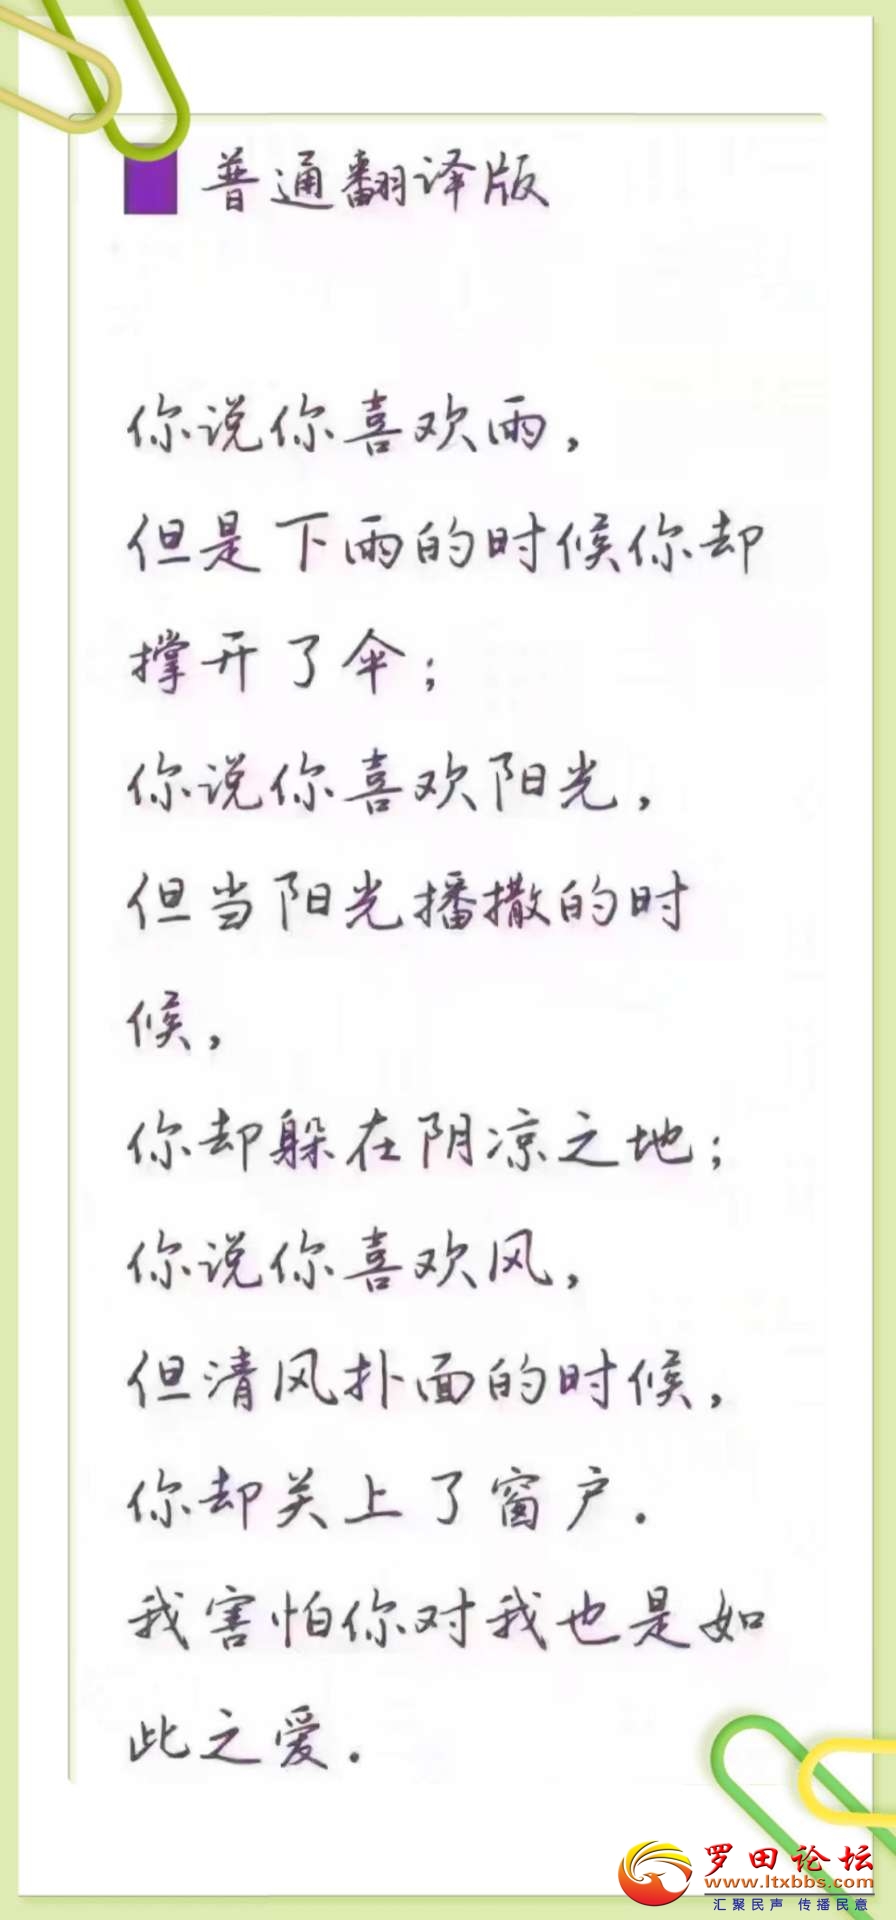 普通翻译版
你说你喜欢雨，
但是下雨的时候你却
撑开了伞；
你说你喜欢阳光，
但当阳光播撒的时
候，
你却躲在阴凉之地；
你说你喜欢风，
但清风扑面的时候，
你却关上了窗户．
我害怕你对我也是如
此之爱．
罗田论坛
www.ltxbbs.com
汇聚民声 传播民意